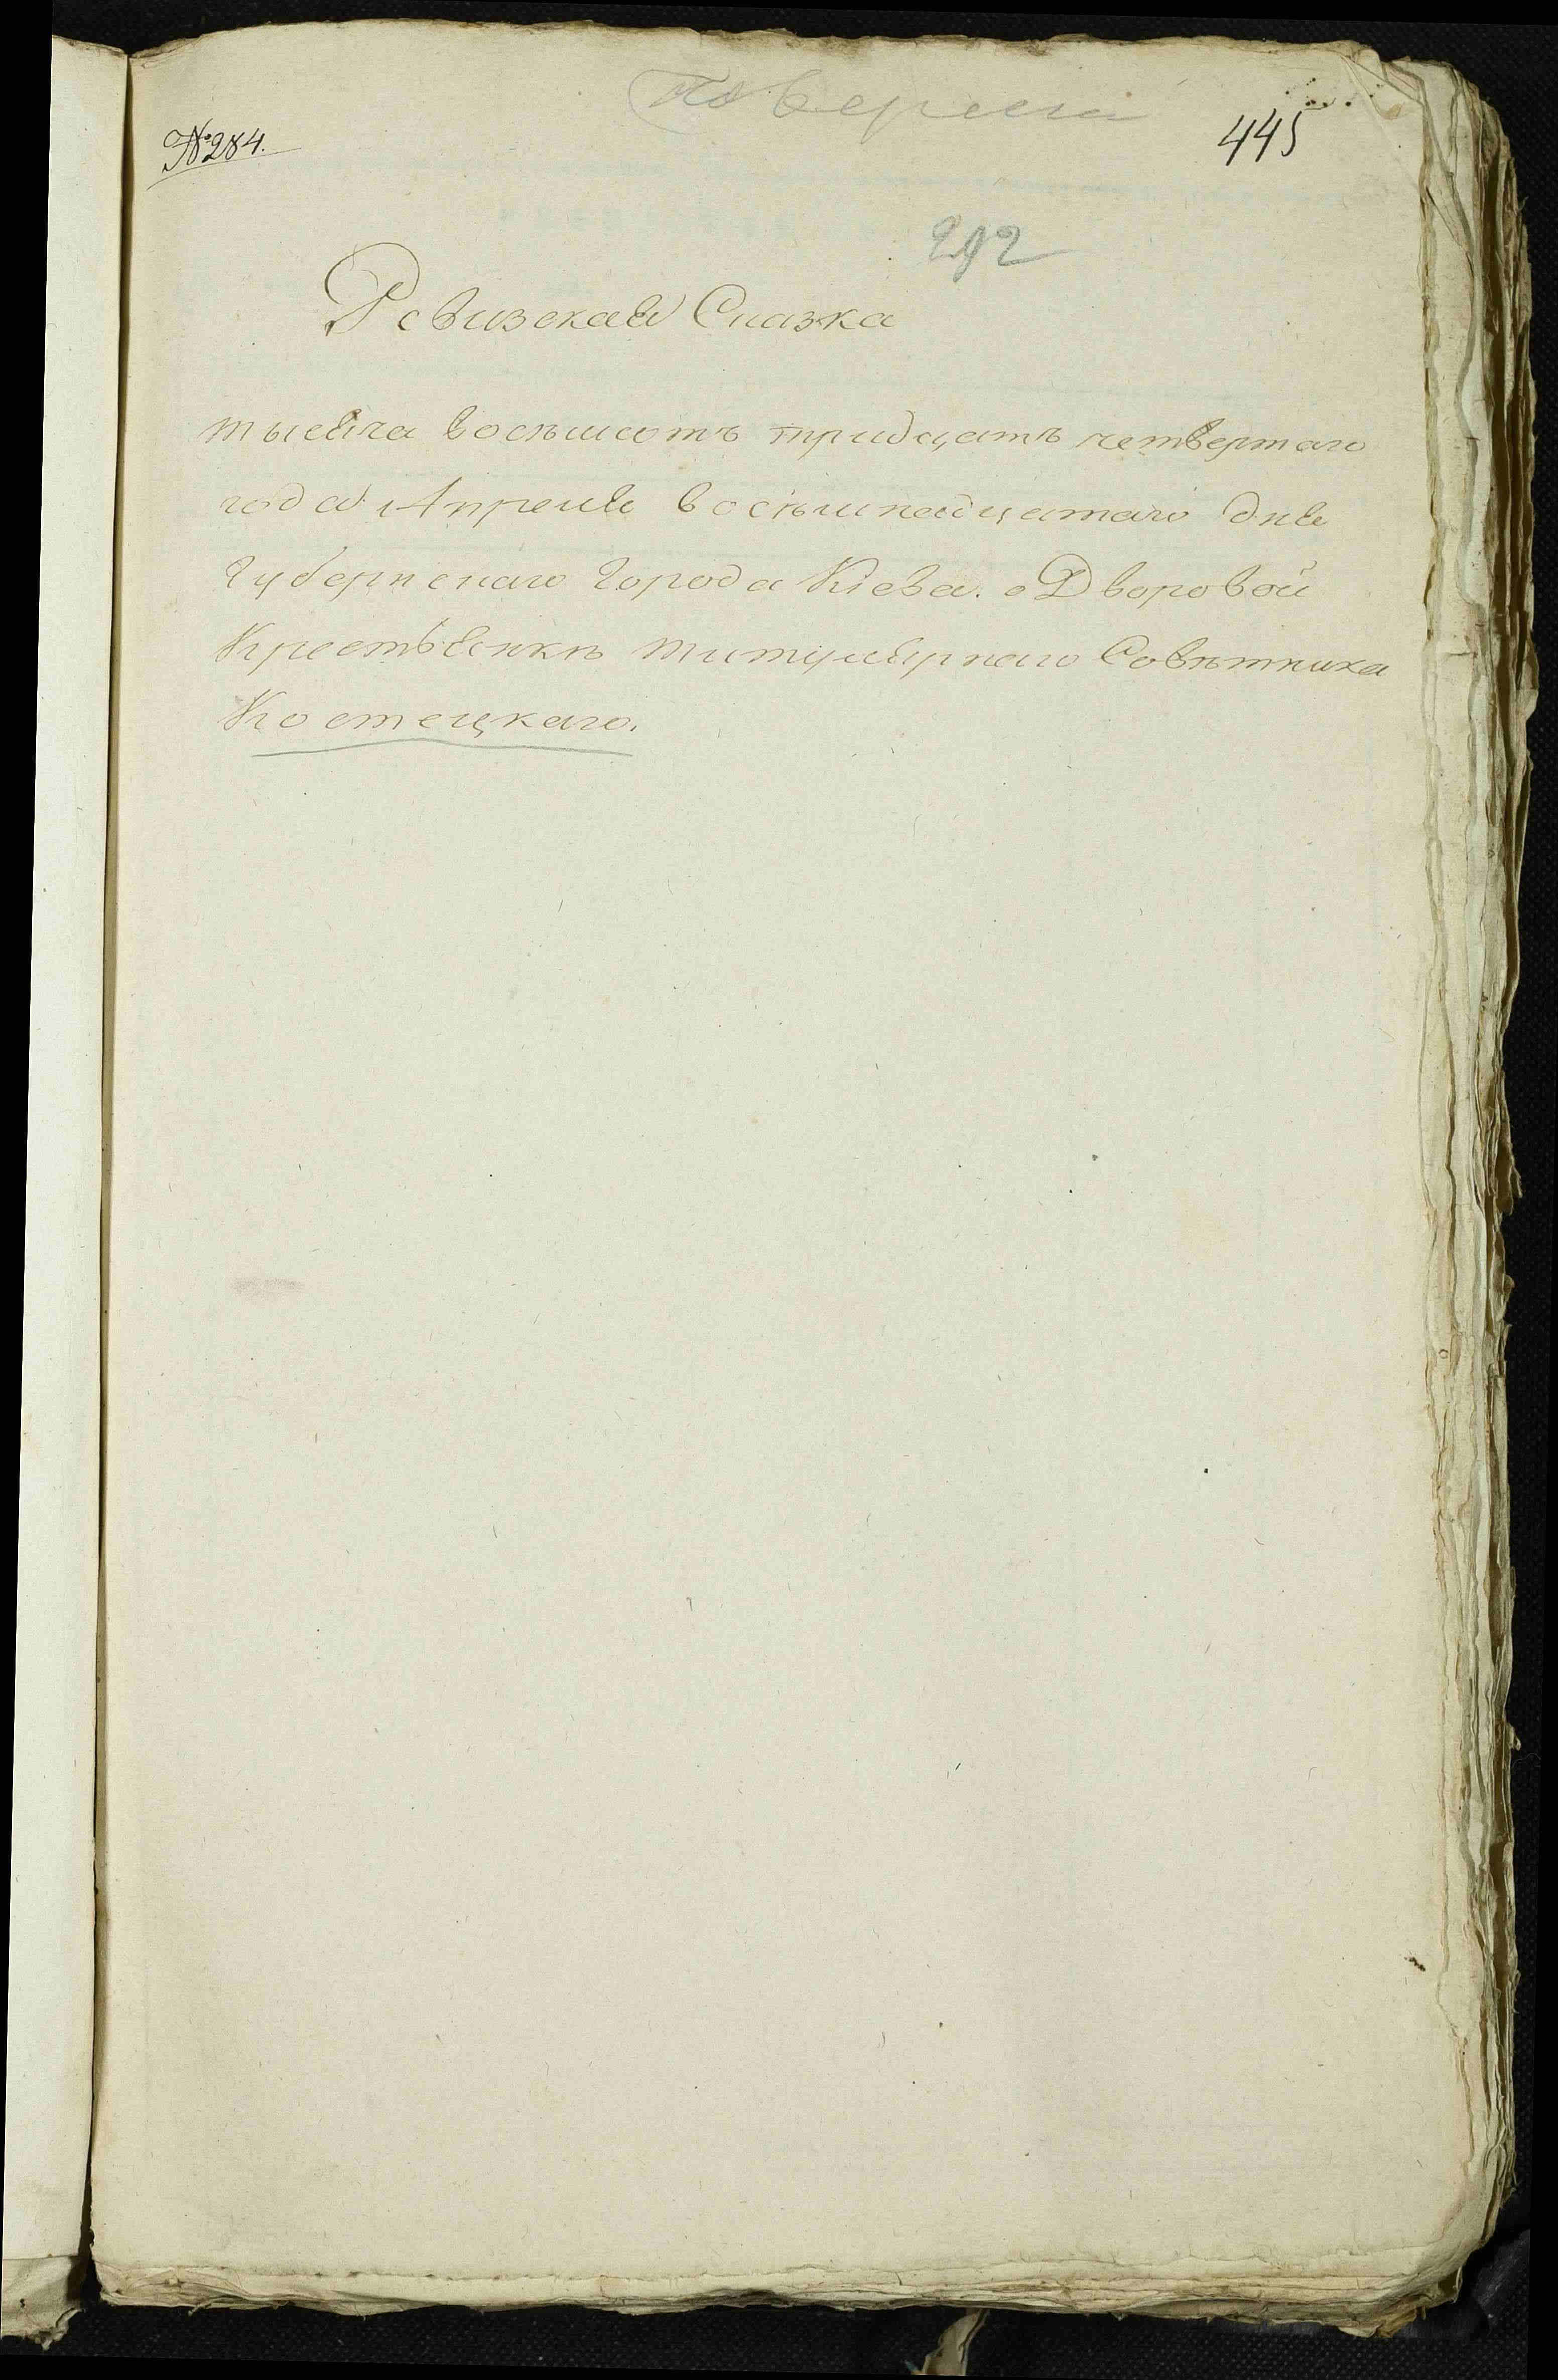 Поверена
№284.
445
292
Ревизская Сказка
тысяча восъмсотъ тридцатъ четвертаго
года Апреля восъмнадцатаго дня
Губернскаго Города Кіева. о Дворовой
Крестьянкѣ титулярнаго Совѣтника
Костецкаго.